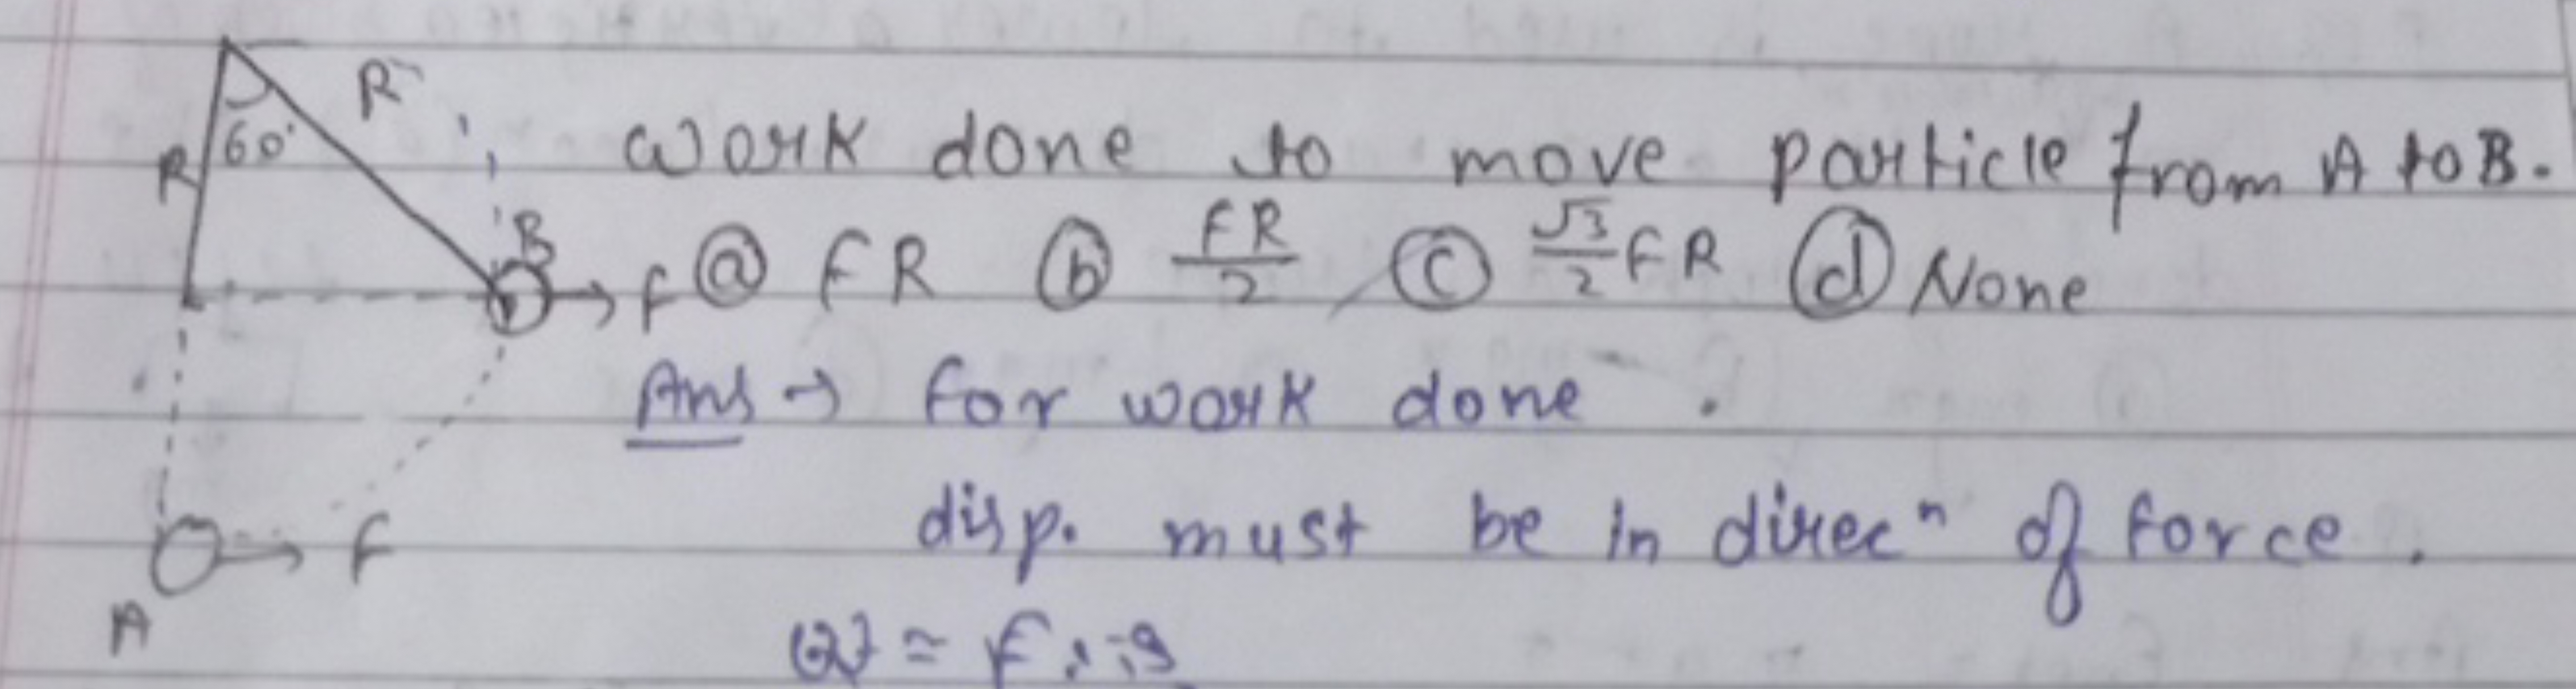 R
60°
R
work done to move particle from A to B.
B
F
ⓐ FR ⓑ FR/2 ⓒ √3/2 FR ⓓ None
Ans → for work done.
disp. must be in direcⁿ of force.
F
A
W = F.